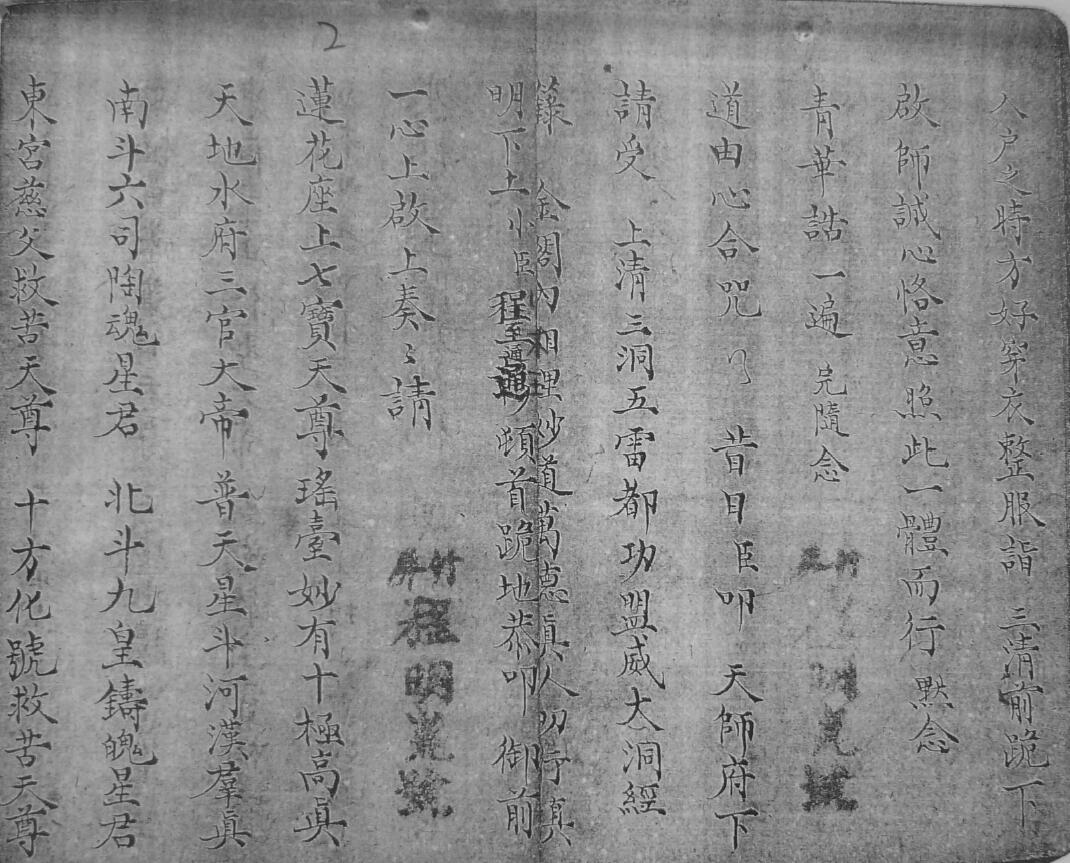 2
入户之時方好穿衣整服詣 三清前跪下
啟師誠心恪意照此一體而行 默念
青華誥一遍 完隨念
道由心合咒 昔日臣叩 天師府下
請受 上清三洞五雷都功盟威大洞經
籙 金闕內相理妙道萬悳真人
明下士小臣 程至通 頓首跪地恭叩 御前
一心上啟上奏〻請
蓮花座上七寶天尊 瑤臺妙有十極高眞
天地水府三官大帝 普天星斗河漢羣眞
南斗六司陶魂星君 北斗九皇鑄魄星君
東宮慈父救苦天尊 十方化號救苦天尊
程明